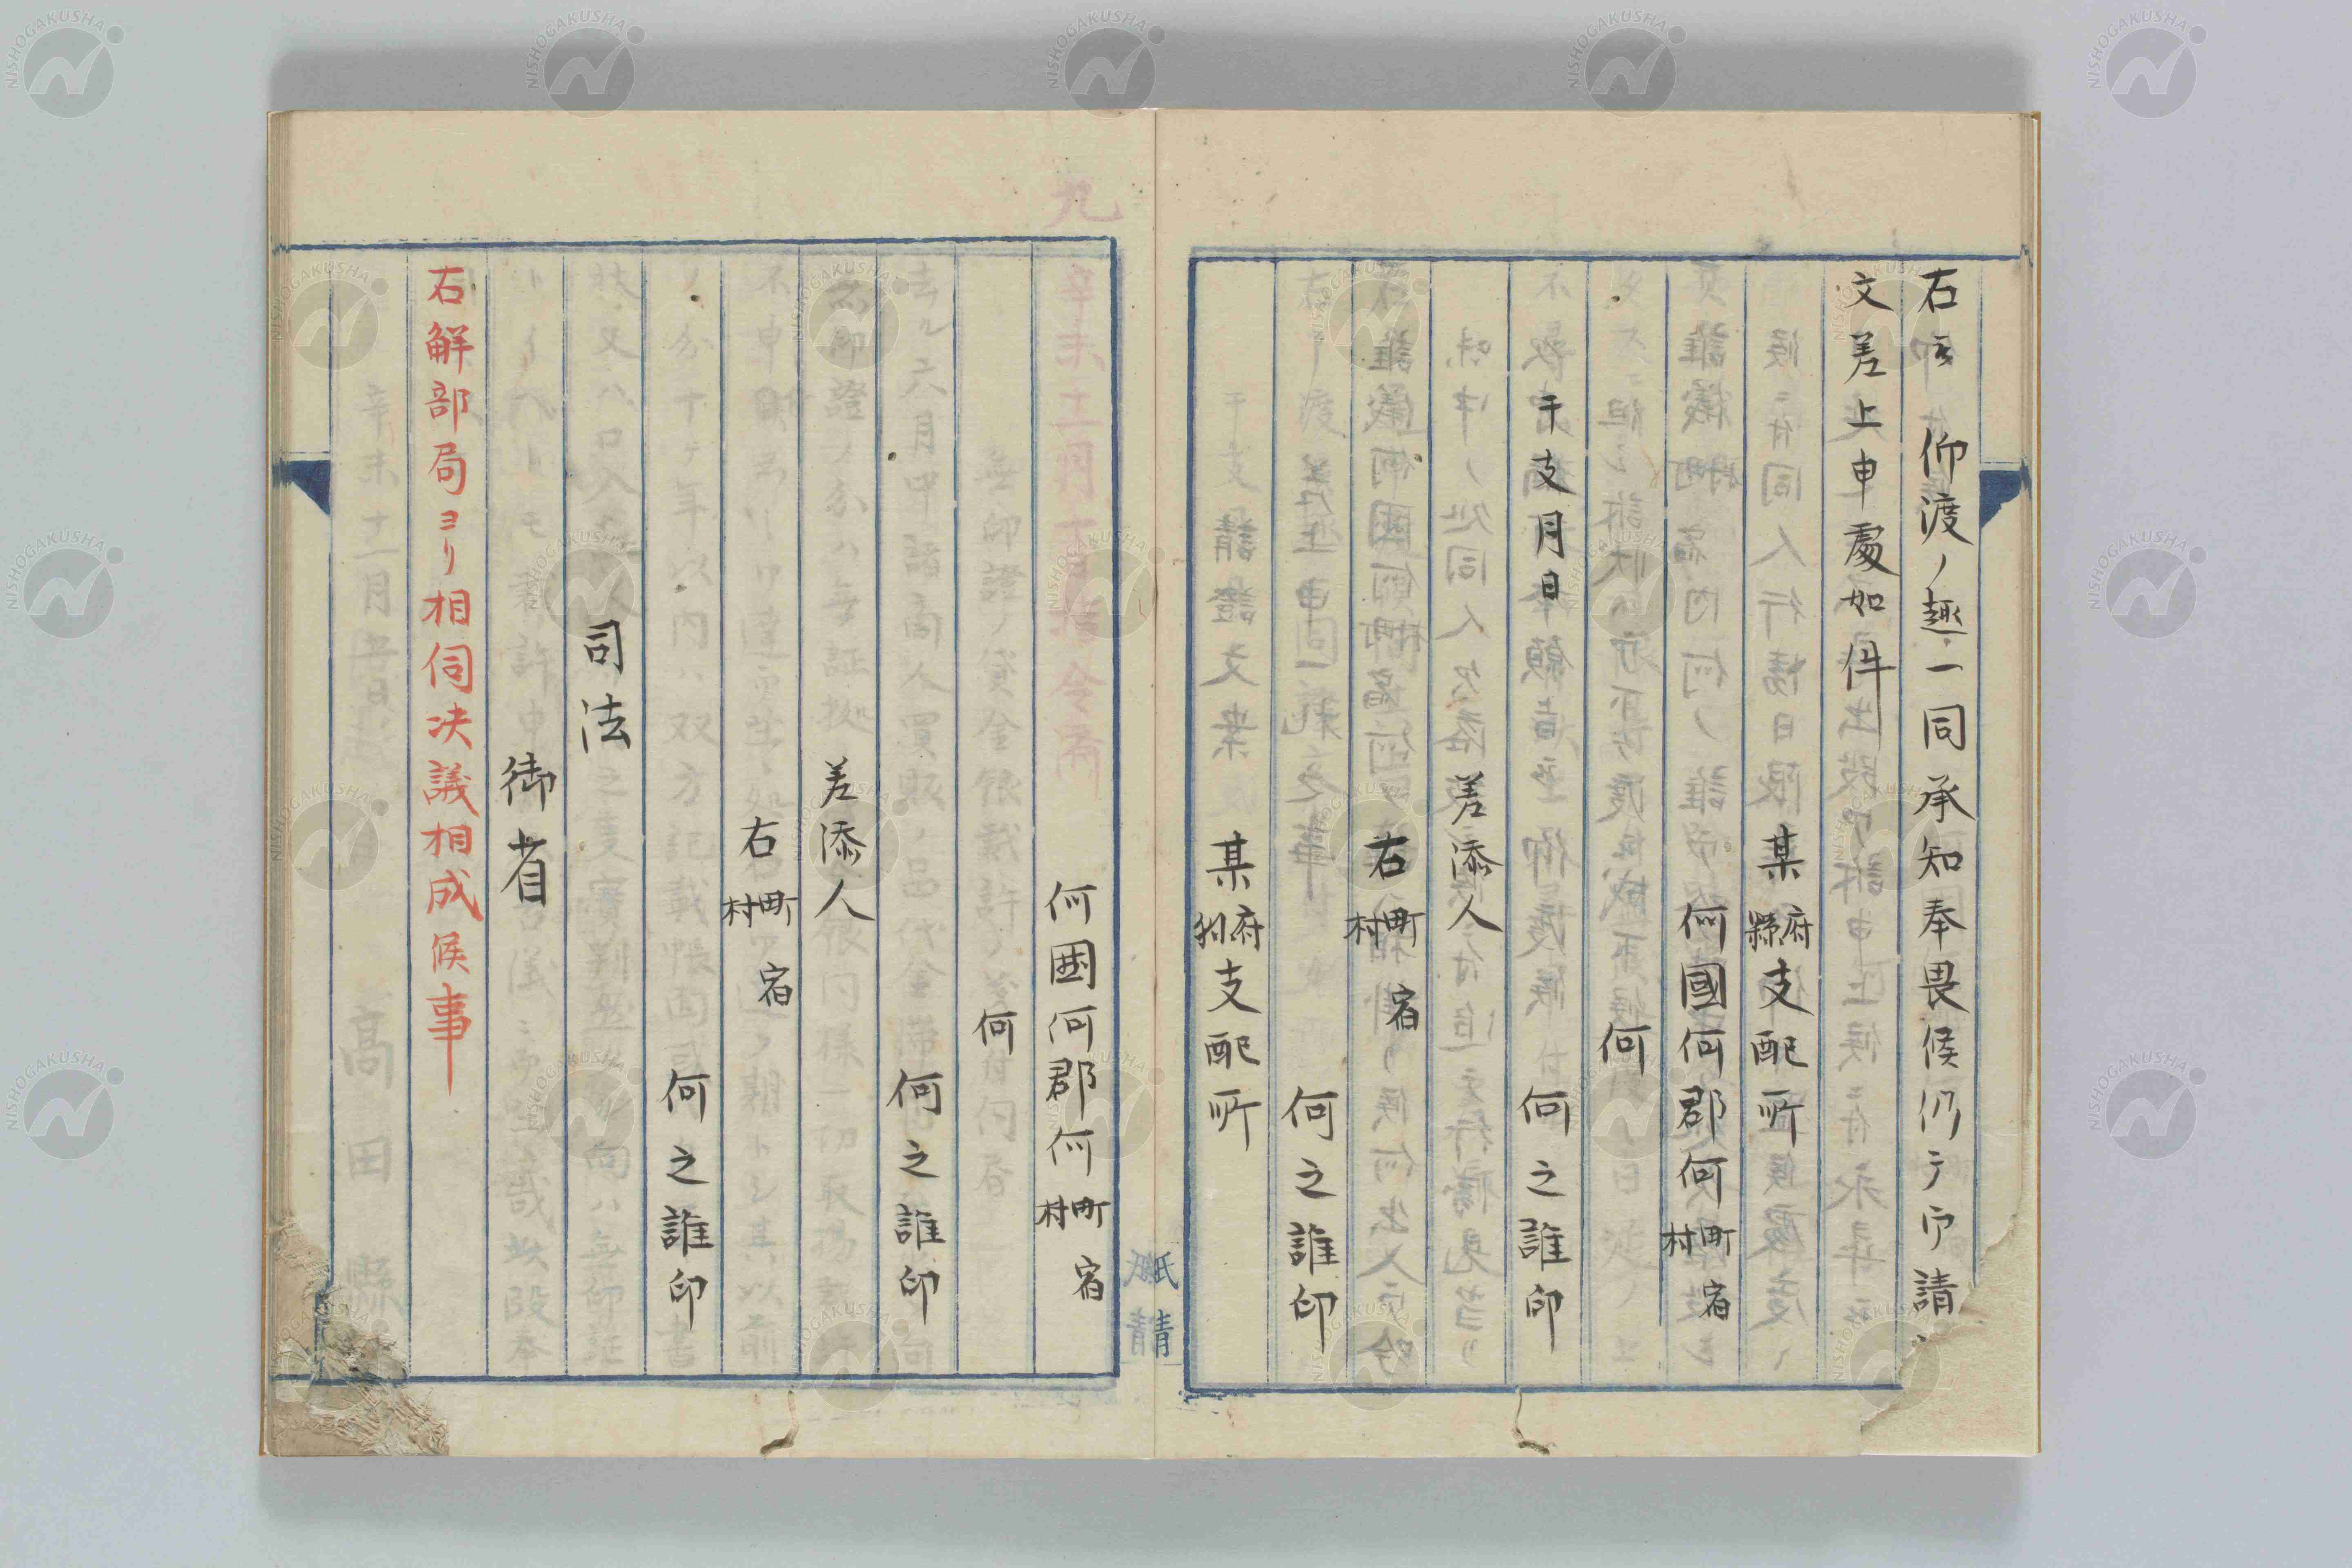 右被 仰渡ノ趣一同承知奉畏候仍テ御請
文差上申處如件
某府縣支配所
何國何郡何町村宿
何
干支月日 何之誰印
差添人
右町村宿
何之誰印
某府縣支配所
何國何郡何町村宿
何
何之誰印
差添人
右町村宿
何之誰印
司法
御省
右解部局ヨリ相伺决議相成候事
NISHOGAKUSHA